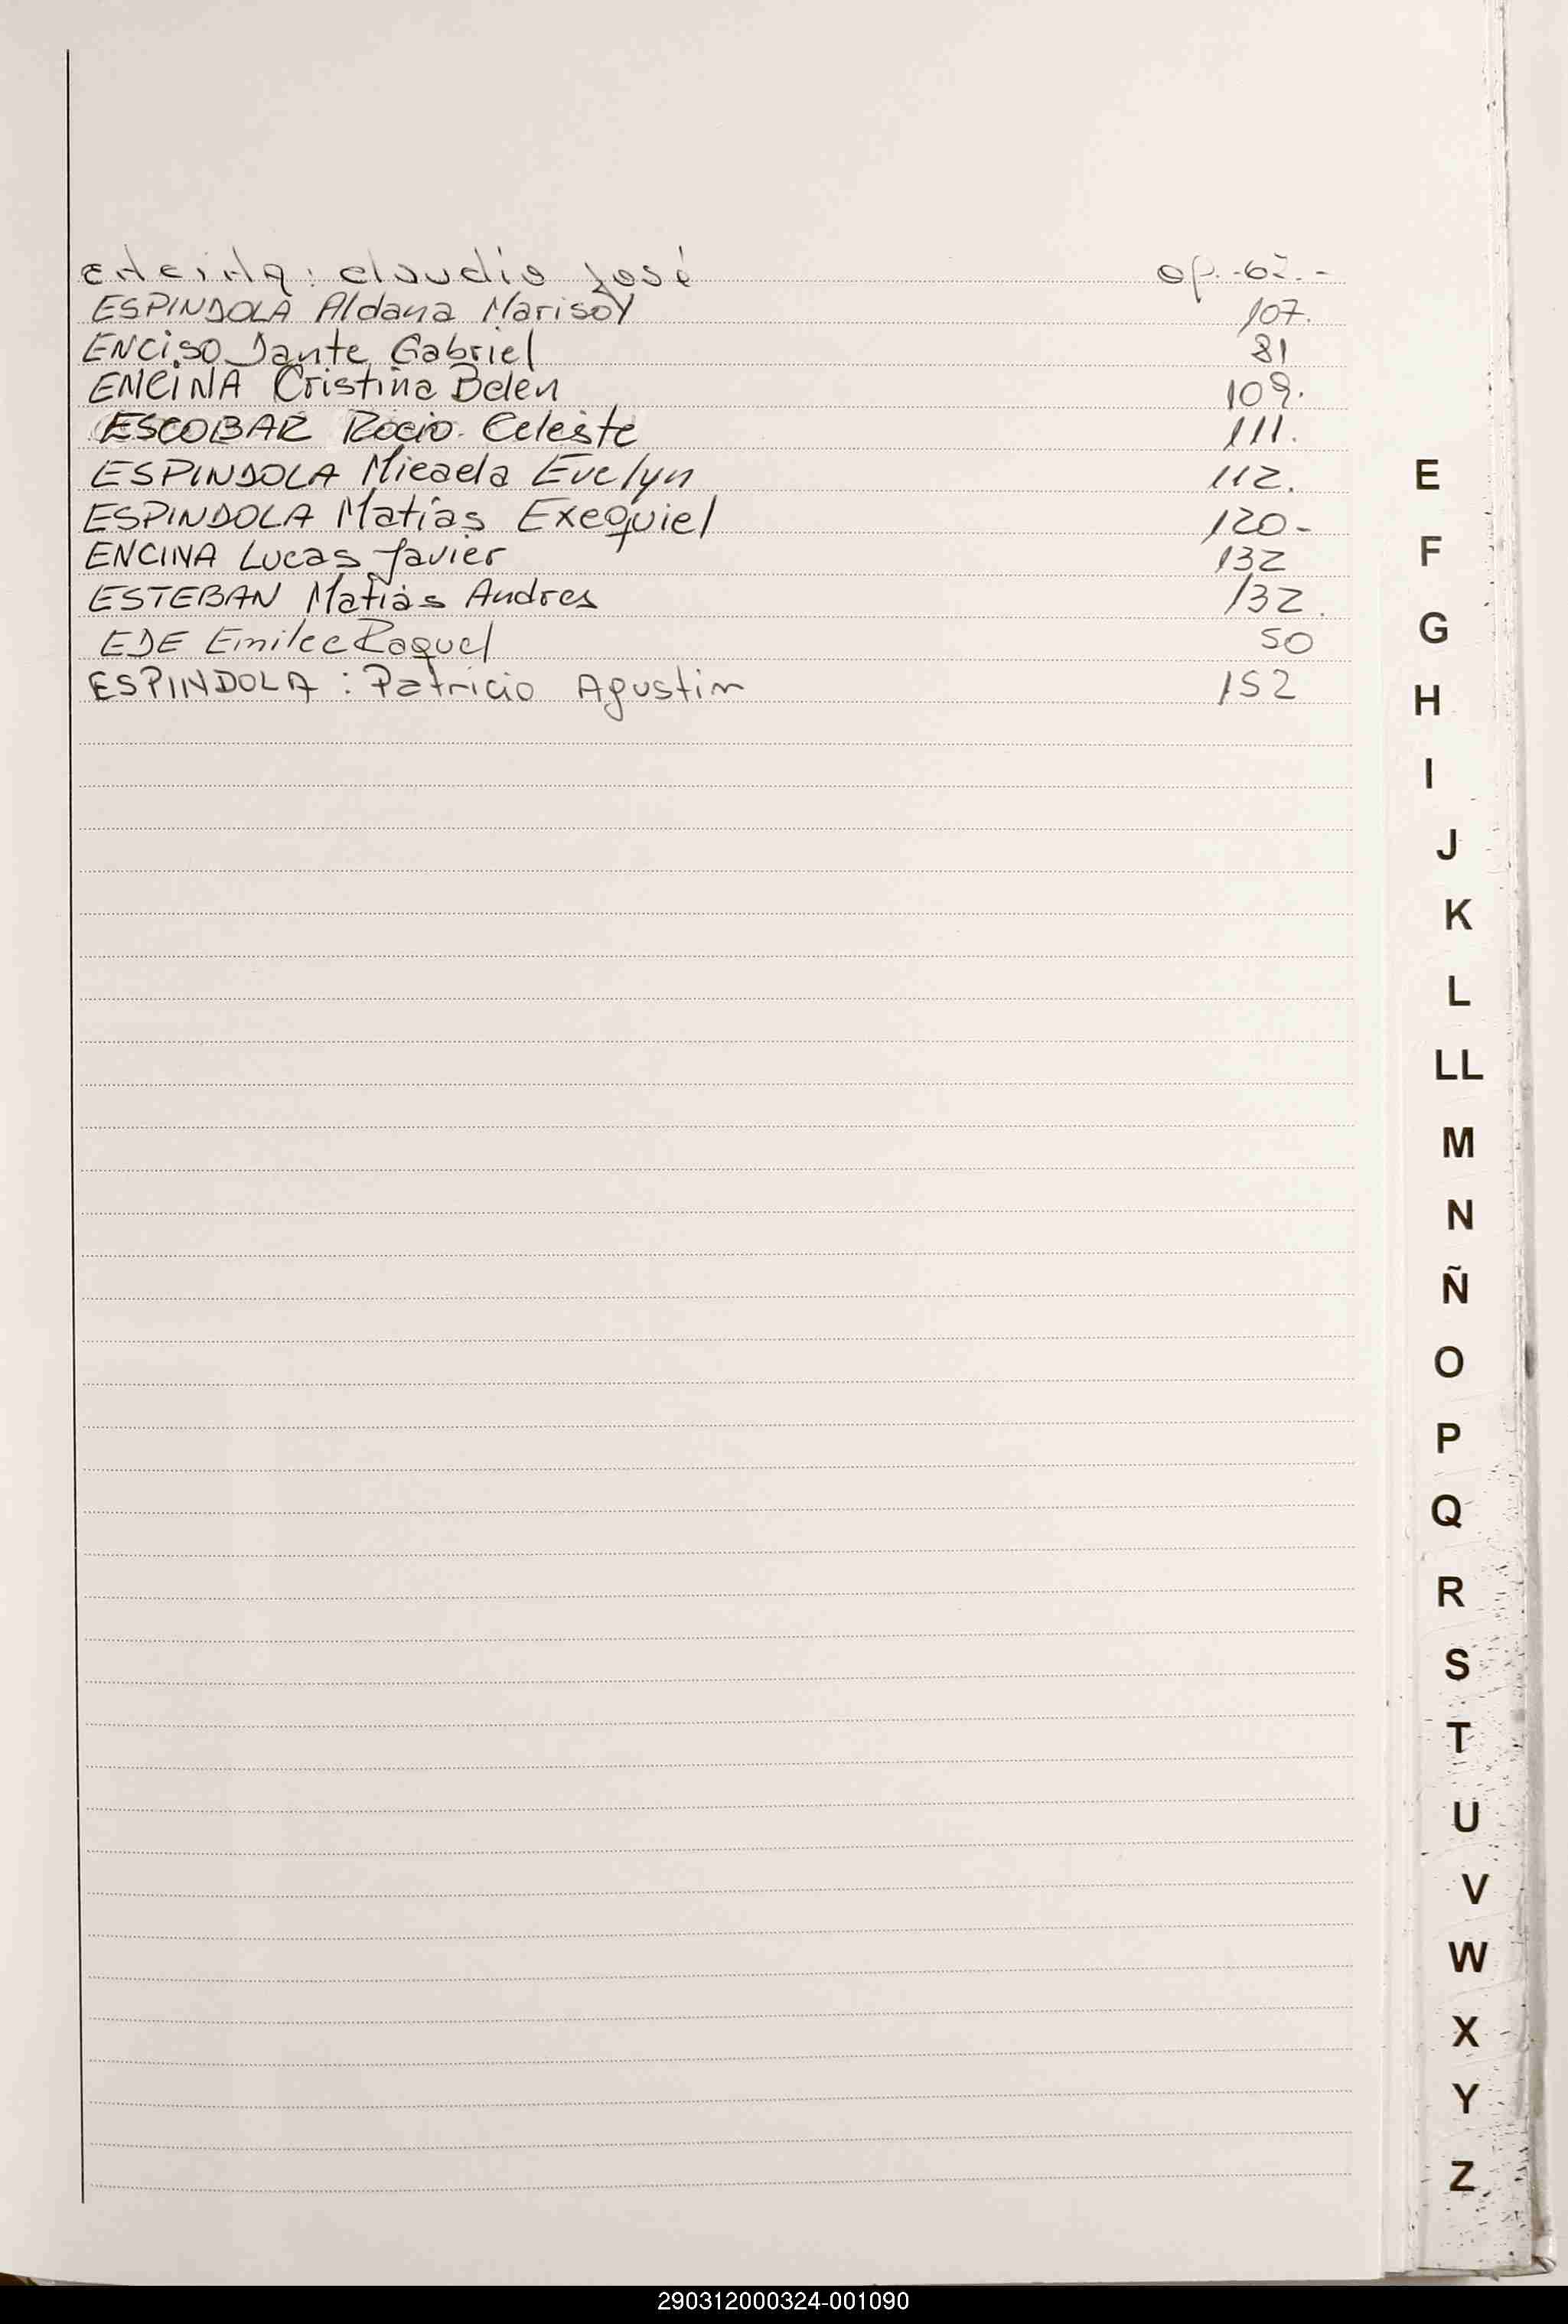 encina: claudio José op.-62.-
ESPINDOLA Aldana Marisol 107.
ENCISO Dante Gabriel 81
ENCINA Cristina Belen 109.
ESCOBAR Rocio Celeste 111.
ESPINDOLA Micaela Evelyn 112.
ESPINDOLA Matías Exequiel 120-
ENCINA Lucas Javier 132
ESTEBAN Matías Andres 132.
EDE Emilce Raquel 50
ESPINDOLA: Patricio Agustin 152
E
F
G
H
I
J
K
L
LL
M
N
Ñ
O
P
Q
R
S
T
U
V
W
X
Y
Z
290312000324-001090